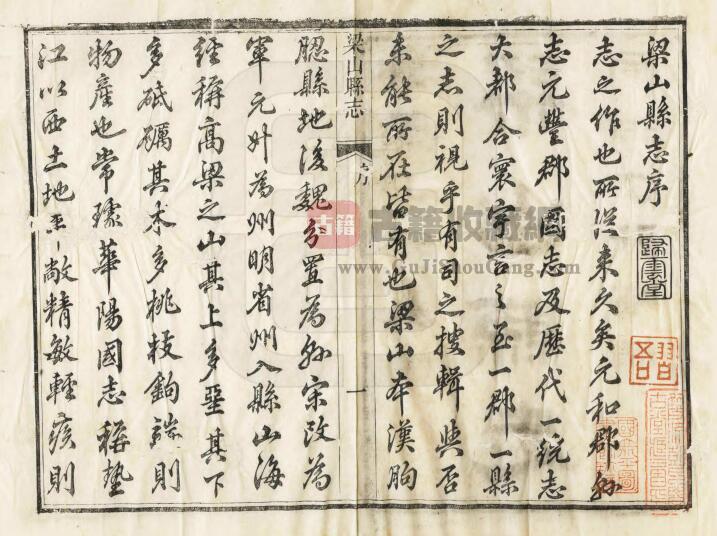 梁山縣志序
志之作也所從来久矣元和郡縣
志元豐郡國志及歷代一統志
大都合寰宇言之至一郡一縣
之志則視乎有司之搜輯與否
未能所在皆有也梁山本漢朐
梁山縣志
序
一
䏰縣地後魏分置為縣宋改為
軍元升為州明省州入縣山海
經稱高梁之山其上多堊其下
多砥礪其木多桃枝鉤端則
物產也常璩華陽國志稱墊
江以西土地平敞精敏輕疾則
歸雲堂
古籍
古籍收藏網
www.GuJiShouCang.com